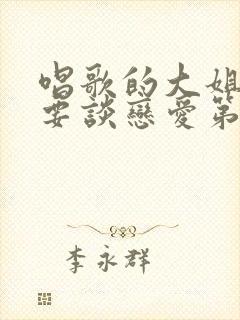 唱歌的大姐
要談戀愛第
李永群